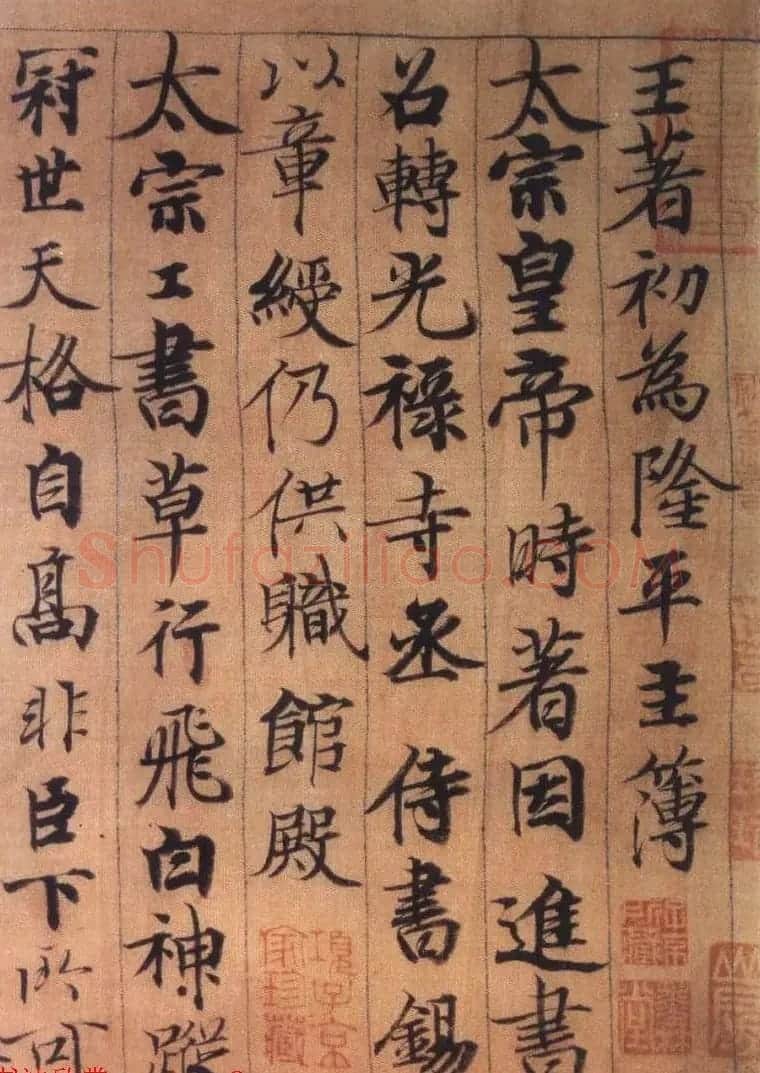 王著初為隆平主簿
太宗皇帝時著因進書
召轉光祿寺丞侍書錫
以章綬仍供職館殿
太宗工書草行飛白神蹤
冠世天格自高非臣下所可
項子京家珍藏
shufaziliao.COM